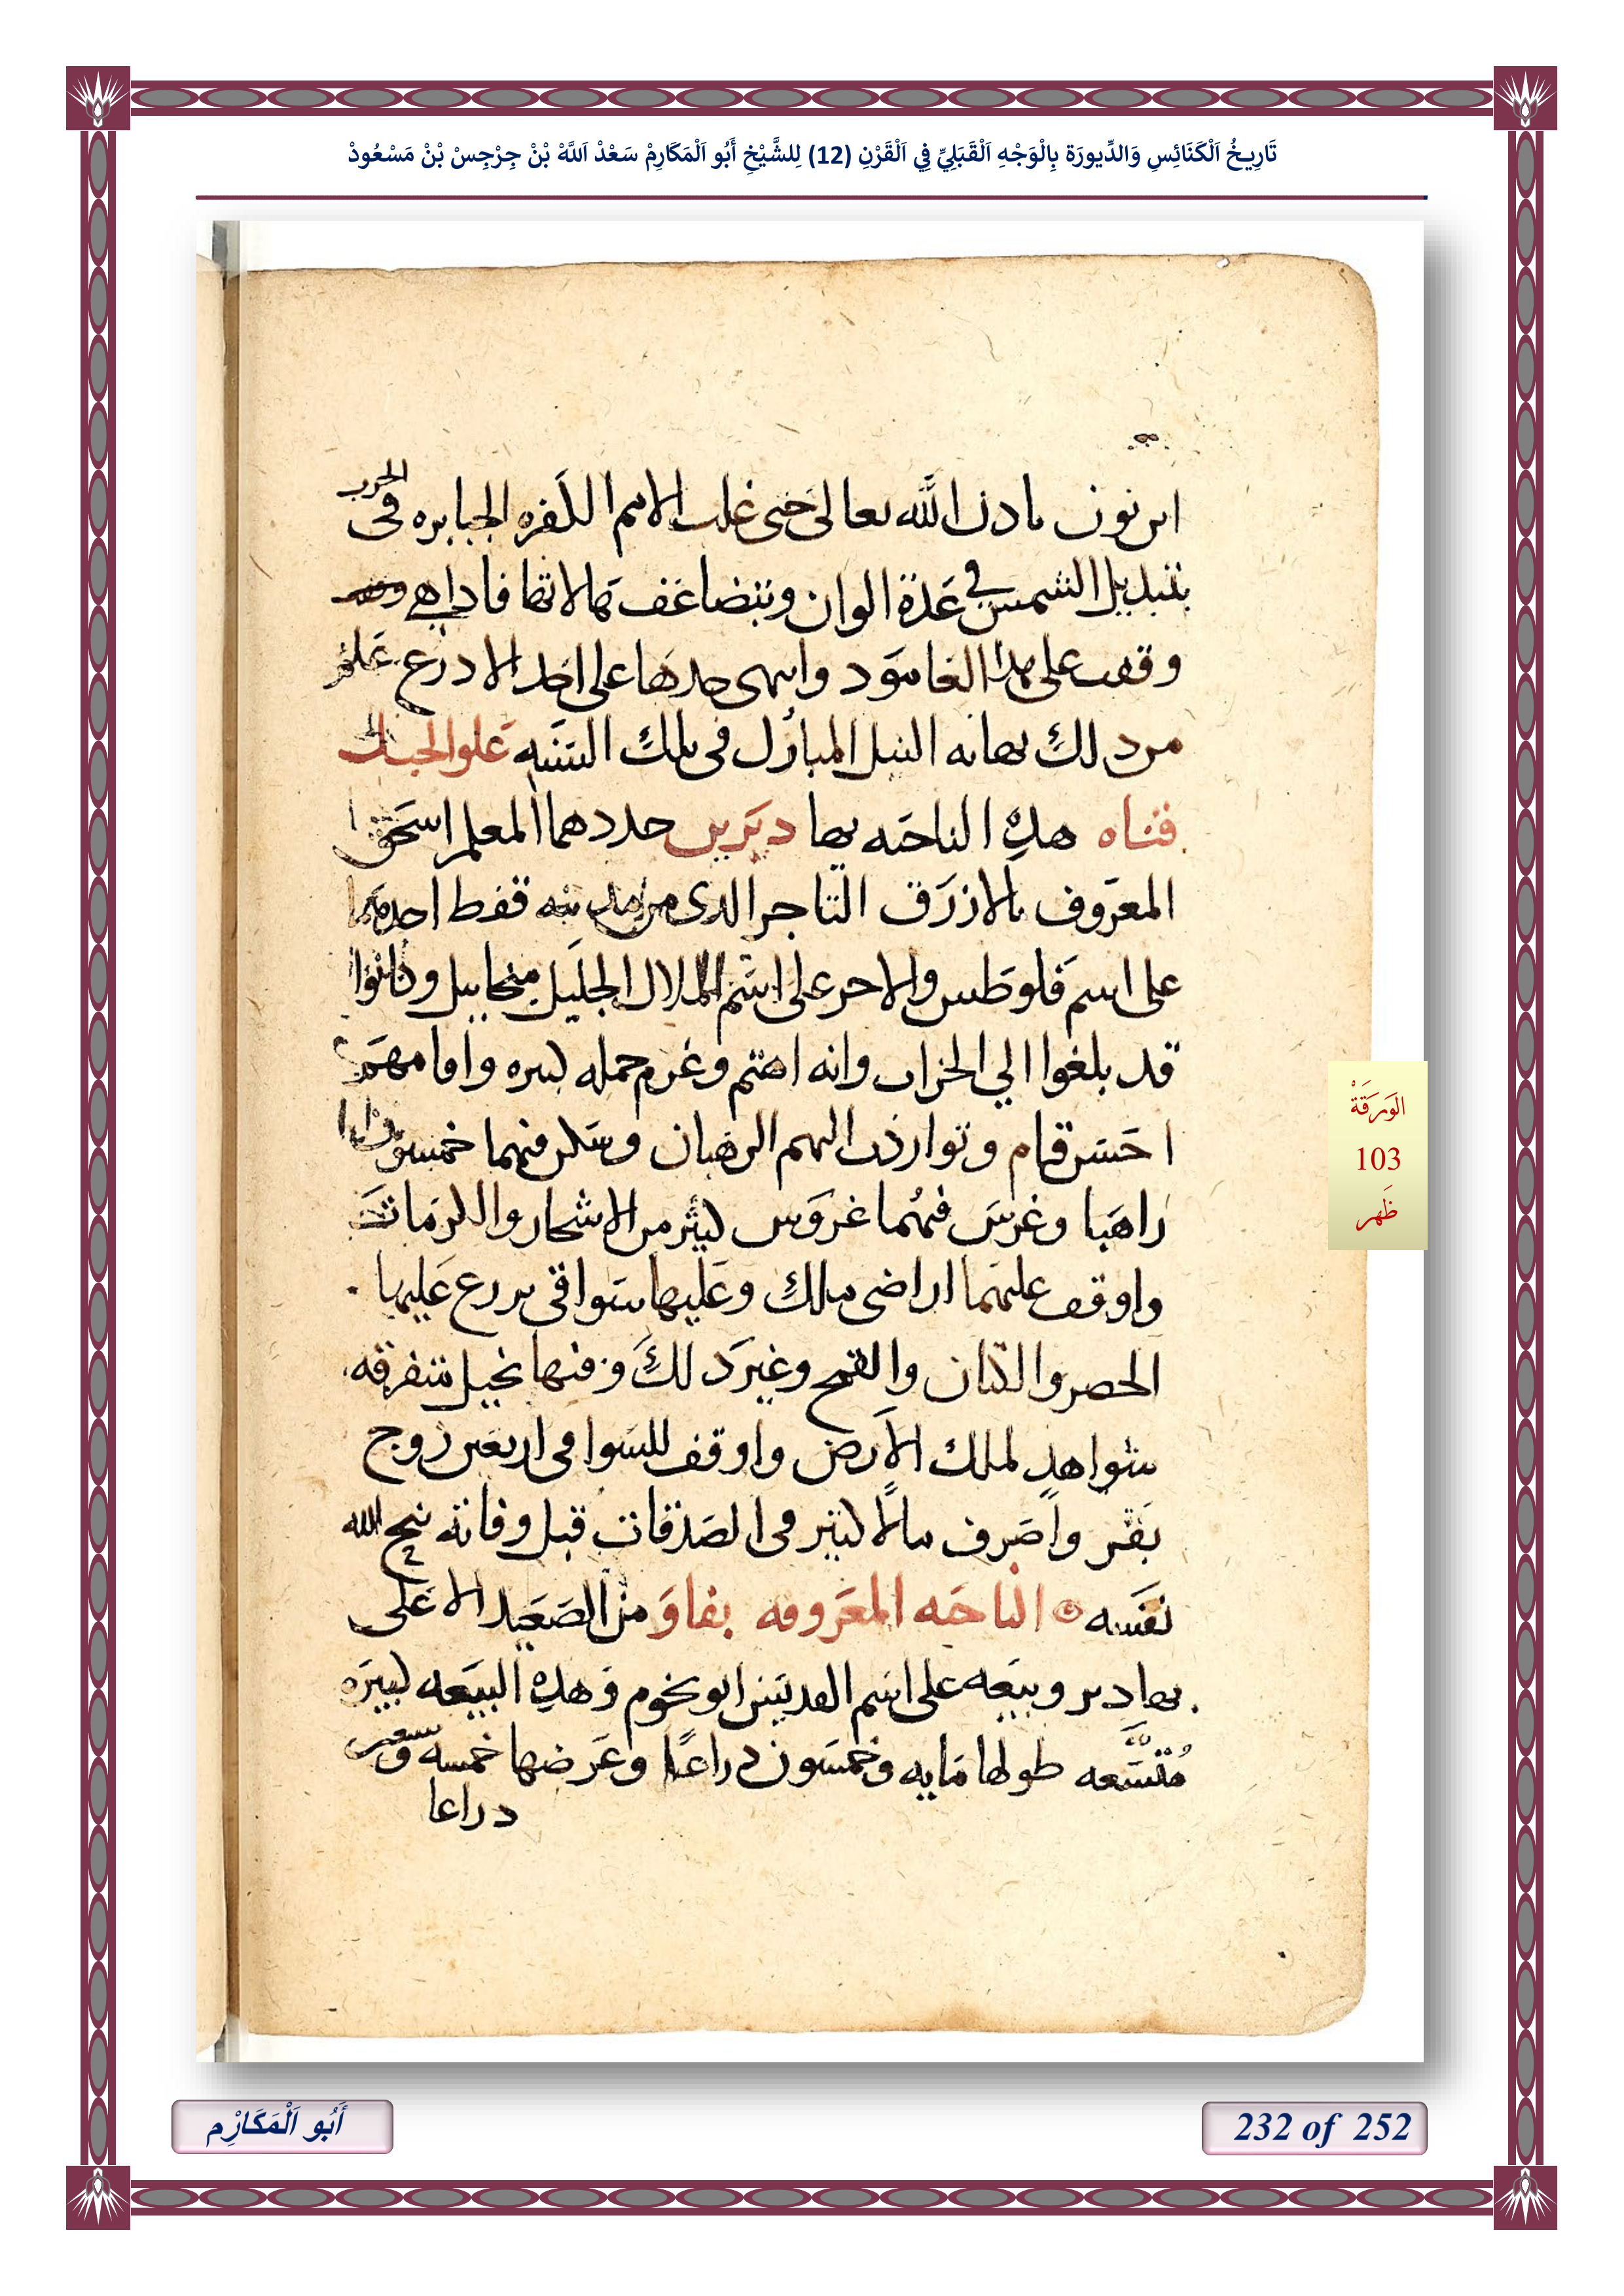 تَارِيخُ اَلْكَنَائِسِ وَالدِّيورَة بِالْوَجْهِ اَلْقَبَلِيِّ فِي اَلْقَرْنِ (12) لِلشَّيْخِ أَبُو اَلْمَكَارِمْ سَعْدْ اَللَّهْ بْنْ جِرْجِسْ بْنْ مَسْعُودْ
ابن نون بادن الله تعالى حتى غلب الامم الكفره الجبابره في الحرب
بتبديل الشمس في عدة الوان وتتضاعف فاداهي
وقف على هذا العامود وانتهى حدها على احد الادرع علم
من دلك نهايه النيل المبارك في تلك السنه علو الجبال
قناه هده الناحيه بها ديرين جددهما المعلم اسحق
المعروف بالازرق التاجر الدى من مدينه قفط احدهما
على اسم فلوطس والاخر على اسم الملاك الجليل ميخاييل وكانوا
قد بلغوا الي الخراب وانه اهتم وغرم جمله كبيره واقامهم
احسن قيام وتواردت اليهم الرهبان وسكن فيهما خمسون
راهبا وغرس فيهما غروس كثير من الاشجار والكرمات
واوقف عليهما اراضى ملك وعليها سواقى يزرع عليها
الحصر والكتان والقمح وغير دلك وفيها نخيل متفرقه
شواهد لملك الارض واوقف للسواقى اربعين زوج
بقر واصرف مالا كثير فى الصدقات قبل وفاته نيح الله
نفسه الناحيه المعروفه بفاو من الصعيد الاعلى
بها دير وبيعه على اسم القديس ابو بخوم وهده البيعه كبيره
متسعه طولها مايه وخمسون دراعا وعرضها خمسه وسبعين
دراعا
الوَرَقَةْ
103
ظَهر
أَبُو اَلْمَكَارِْم
232 of 252